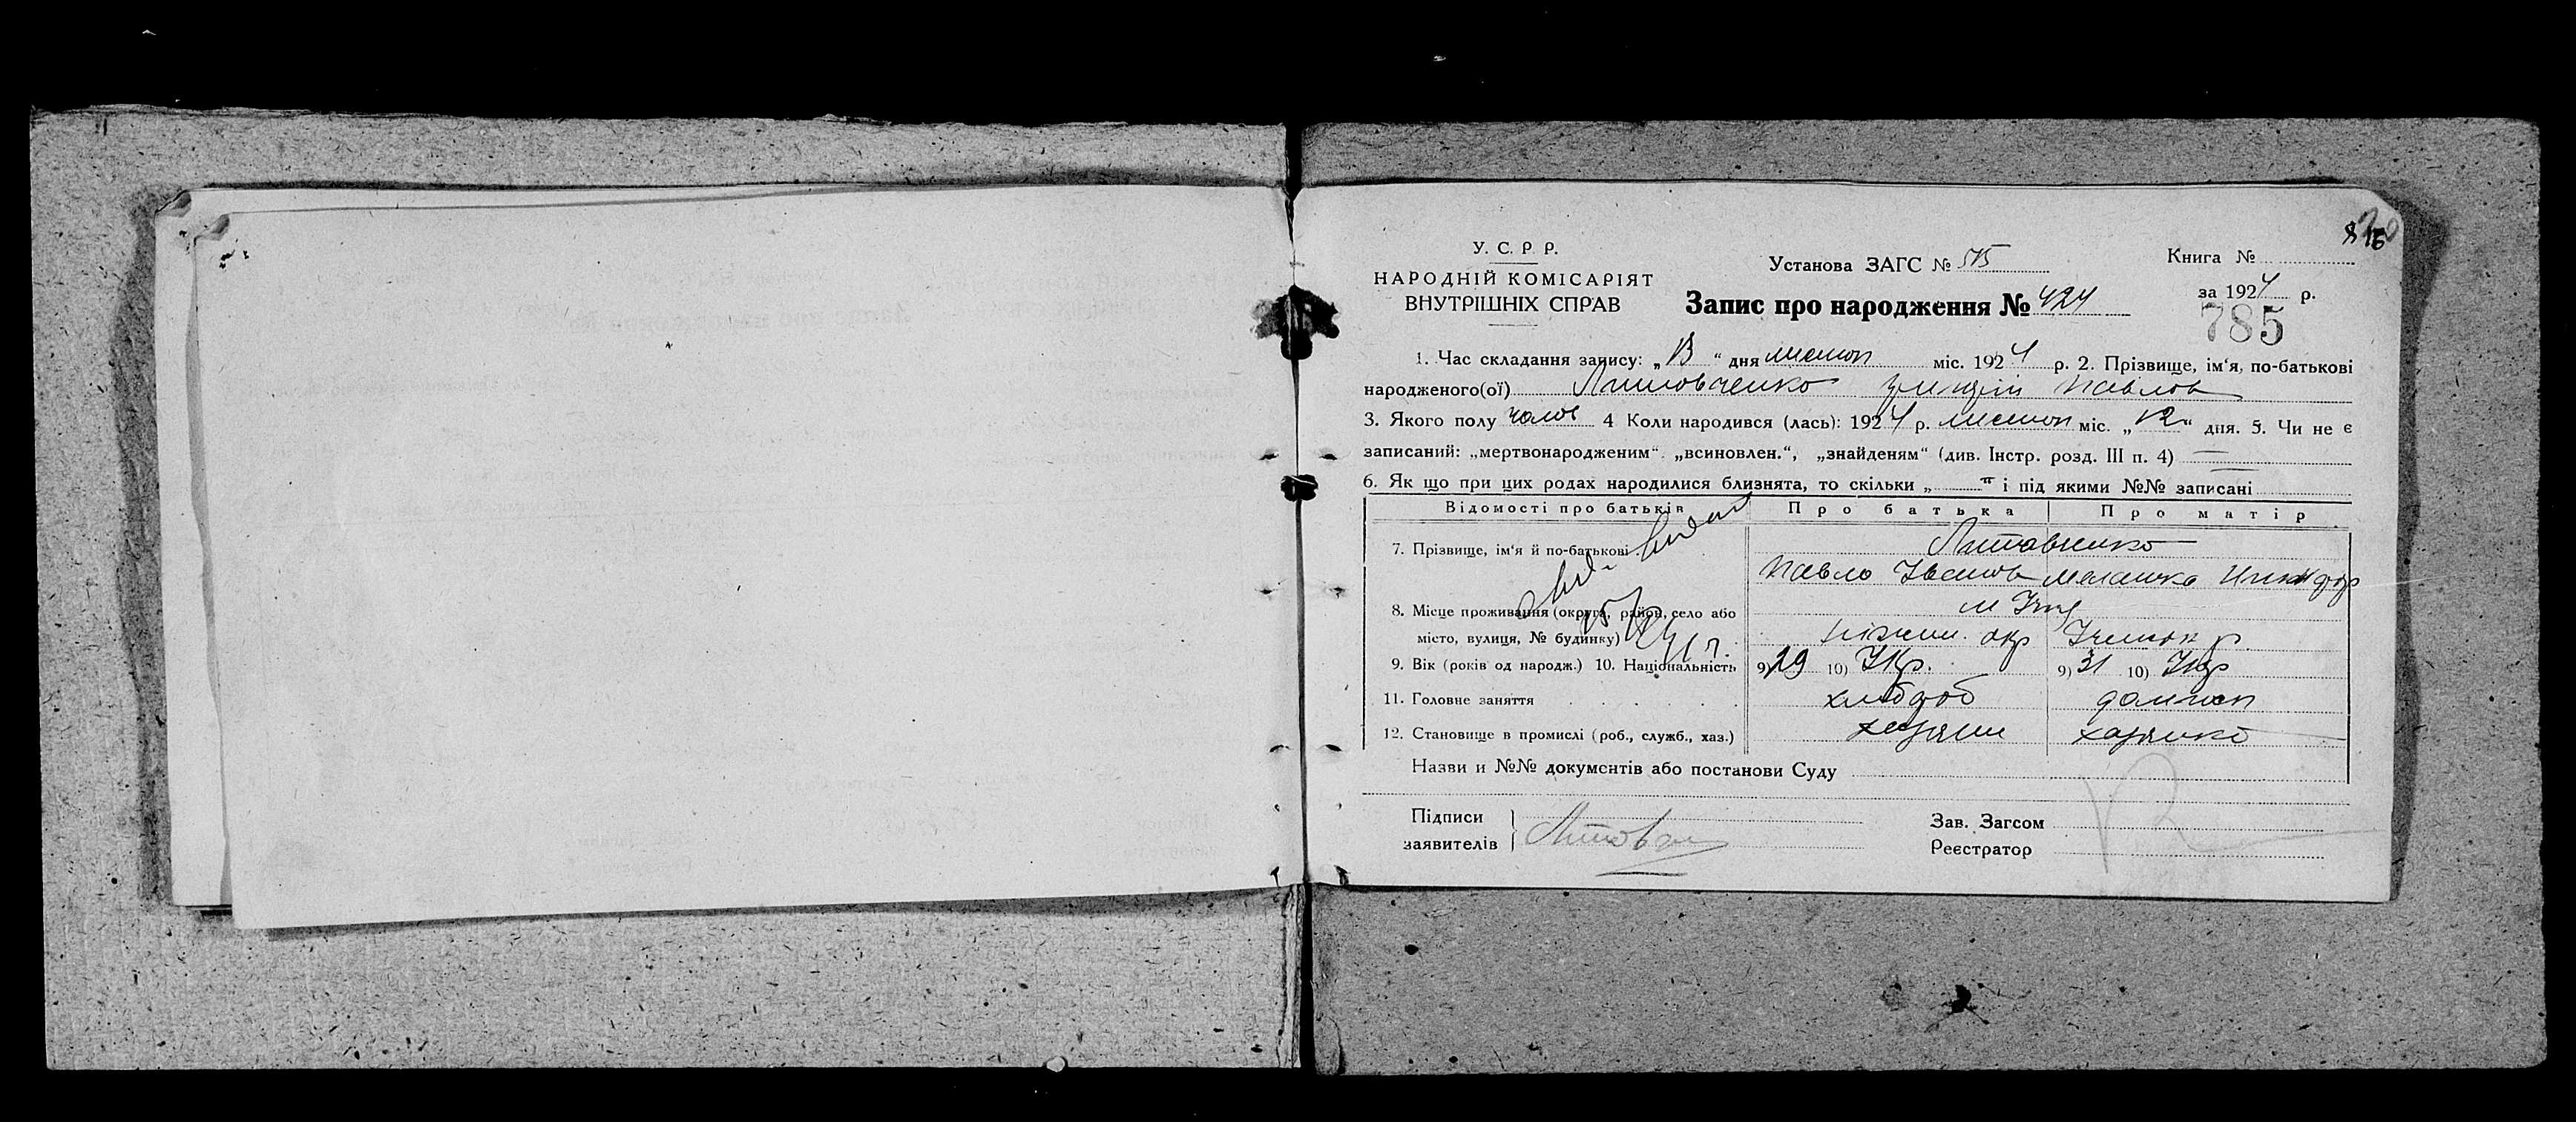 У. С. Р. Р.
НАРОДНІЙ КОМІСАРІЯТ
ВНУТРІШНІХ СПРАВ
Установа ЗАГС № 515
Запис про народження № 424
Книга №
за 1924 р.
785
1. Час складання запису: „13“ дня листоп міс. 1924 р. 2. Прізвище, ім‘я, по-батькові
народженого(ої) Литовченко Павлов
3. Якого полу чолов 4 Коли народився (лась): 1924 р. листоп міс. „12“ дня. 5. Чи не є
записаний: „мертвонародженим“, „всиновлен.“, „знайденям“ (див. Інстр. розд. III п. 4) —
6. Як що при цих родах народилися близнята, то скільки „ “ і під якими №№ записані
Відомості про батьків Про батька Про матір
7. Прізвище, ім‘я й по-батькові Литовченко
Павло Іванов Меланка
8. Місце проживання (округа, район, село або
місто, вулиця, № будинку) ніжин. окр
9. Вік (років од народж.) 10. Національність 9) 29 10) Укр. 9) 31 10) Укр
11. Головне заняття хлібороб
12. Становище в промислі (роб., служб., хаз.) хазяин хазяйка
Назви и №№ документів або постанови Суду
Підписи
заявителів
Зав. Загсом
Реєстратор